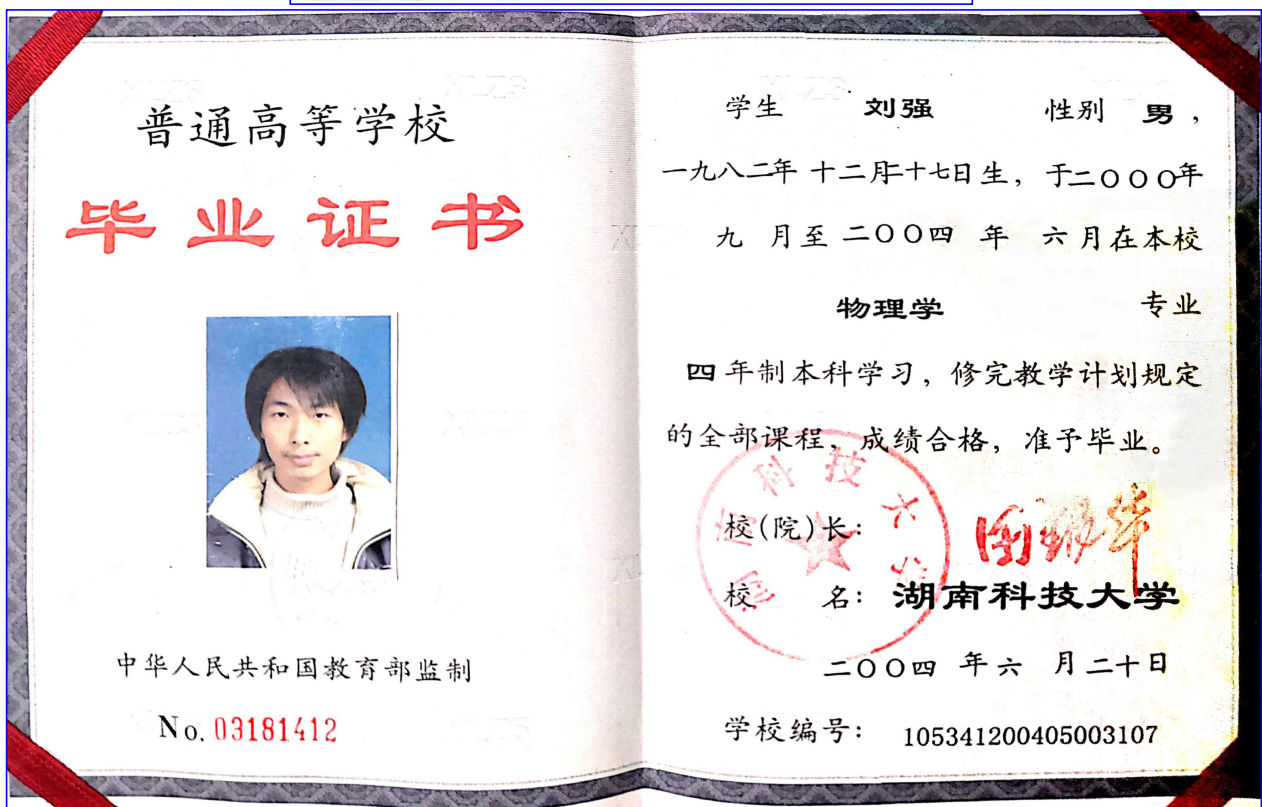 普通高等学校
毕业证书
中华人民共和国教育部监制
No. 03181412
学生 刘强 性别 男，
一九八二年 十二月二十七日生，于二〇〇〇年
九 月至 二〇〇四 年 六月在本校
物理学 专业
四年制本科学习，修完教学计划规定
的全部课程，成绩合格，准予毕业。
校(院)长：
校 名：湖南科技大学
二〇〇四 年 六 月二十日
学校编号： 105341200405003107
湖南科技大学